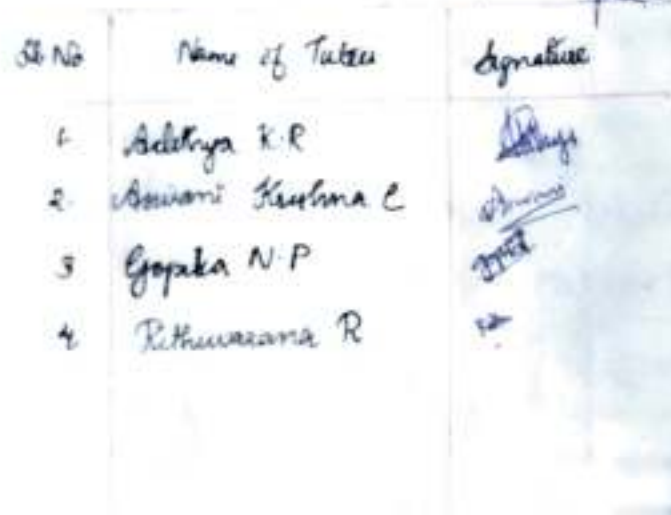 Sl. No Name of Tutor Signature
1. Adithya K.R
2. Aswani Krishna C
3 Gopika N.P
4 Rithuvarana R